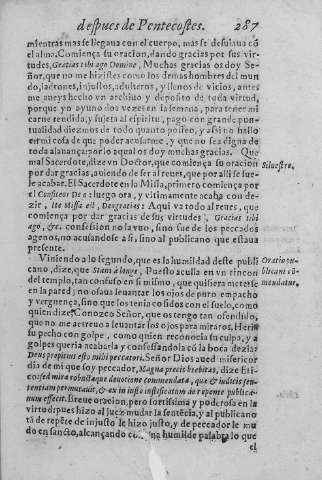 despues de Pentecostes. 287
mientras mas se llegaua con el cuerpo, mas se desuiaua cõ
el alma. Comiença su oracion, dando gracias por sus vir-
tudes, Gratias tibi ago Domine, Muchas gracias os doy Se-
ñor, que no me hizistes como los demas hombres del mun
do, ladrones, injustos, adulteros, y llenos de vicios, antes
me aueys hecho vn archiuo y deposito de toda virtud,
porque yo ayuno dos vezes en la semana, para tener mi
carne rendida, y sujeta al espiritu, pago con grande pun-
tualidad diezmos de todo quanto posseo, y assi no hallo
en mi cosa de que poder acusarme, y que no sea digna de
toda alabança; por lo qual os doy muchas gracias. Que
mal Sacerdote, dize vn Doctor, que comiença su oracion
por dar gracias, auiendo de ser al reues, que por alli se sue-
le acabar. El Sacerdote en la Missa, primero comiença por
el Confiteor Deo: luego ora, y vltimamente acaba con de-
zir, Ite Missa est, Deo gratias: Aqui va todo al reues, que
comiença por dar gracias de sus virtudes, Gratias tibi
ago, &c. confession no la vuo, sino fue de los peccados
agenos, no acusandose a si, sino al publicano que estaua
presente.
Siluestro.
Viniendo a lo segundo, que es la humildad deste publi
cano, dize, que Stans à longe, Puesto aculla en vn rincon
del templo, tan confuso en si mismo, que quisiera meterse
en la pared; no osaua leuantar los ojos de puro empacho
y verguença, sino que los tenia cosidos con el suelo, como
quien dize: Conozco Señor, que os tengo tan ofendido,
que no me atreuo a leuantar los ojos para miraros. Heria
su pecho con golpe, como quien reconocia su culpa, y a
golpes queria acabarla y confessandola cõ la boca dezia:
Deus propitius esto mihi peccatori. Señor Dios aued misericor
dia de mi que soy peccador, Magna precis breuitas, dize Eti-
co: sed mira robustaque deuotione commendata, quæ & iudicis sen-
tentiam permutauit, & ex in iusto iustificatum de repente publica-
num effecit. Breue oracion, pero fortissima y poderosa en la
virtud: pues hizo al juez mudar la sentẽcia, y al publicano
tã de repẽte de injusto le hizo justo, y de peccador le mu
do en sancto, alcançando con vna humilde palabra lo que
el
Oratio pu-
blicani cõ-
mendatur.